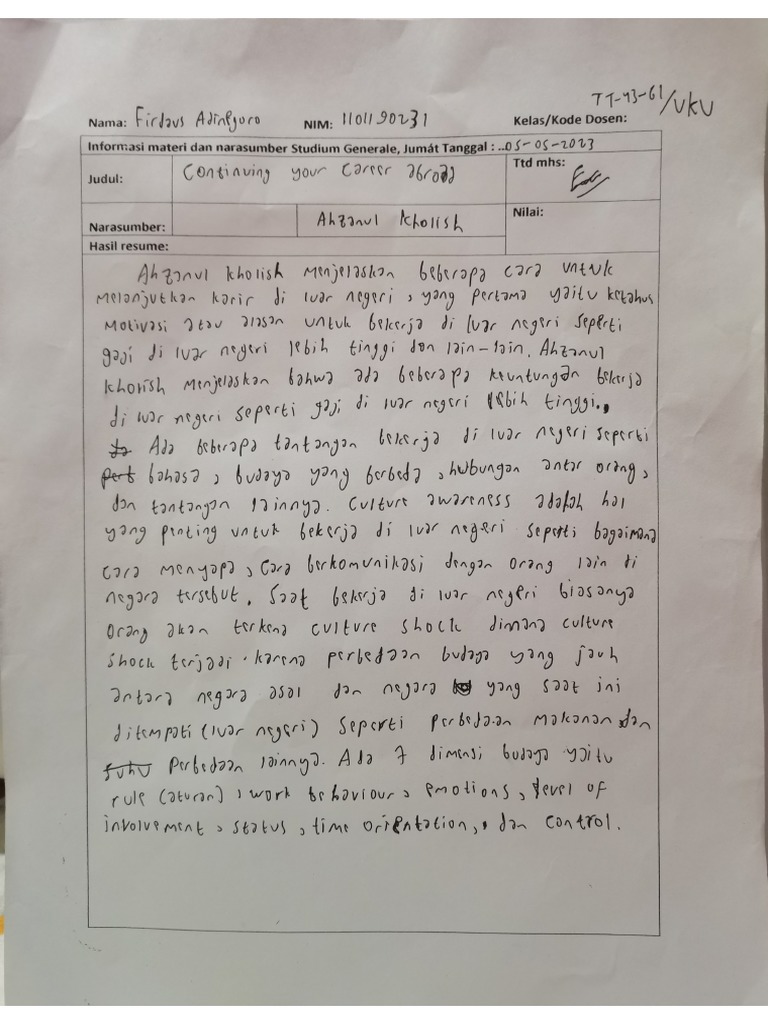 Nama: Firdaus Adinegoro NIM: 1101190231 Kelas/Kode Dosen: TT-43-61/VKV
Informasi materi dan narasumber Studium Generale, Jumát Tanggal : ..05-05-2023
Judul: Continuing your Career abroad Ttd mhs:
Narasumber: Ahzanul Kholish Nilai:
Hasil resume:
Ahzanul Kholish menjelaskan beberapa cara untuk
melanjutkan karir di luar negeri, yang pertama yaitu ketahui
motivasi atau alasan untuk bekerja di luar negeri seperti
gaji di luar negeri lebih tinggi dan lain-lain. Ahzanul
Kholish menjelaskan bahwa ada beberapa keuntungan bekerja
di luar negeri seperti gaji di luar negeri lebih tinggi.,
Ada beberapa tantangan bekerja di luar negeri seperti
bahasa, budaya yang berbeda, hubungan antar orang,
dan tantangan lainnya. Culture awareness adalah hal
yang penting untuk bekerja di luar negeri seperti bagaimana
cara menyapa, cara berkomunikasi dengan orang lain di
negara tersebut. Saat bekerja di luar negeri biasanya
orang akan terkena culture shock dimana culture
shock terjadi karena perbedaan budaya yang jauh
antara negara asal dan negara yang saat ini
ditempati (luar negeri) seperti perbedaan makanan dan
perbedaan lainnya. Ada 7 dimensi budaya yaitu
rule (aturan), work behaviour, emotions, level of
involvement, status, time orientation, dan control.